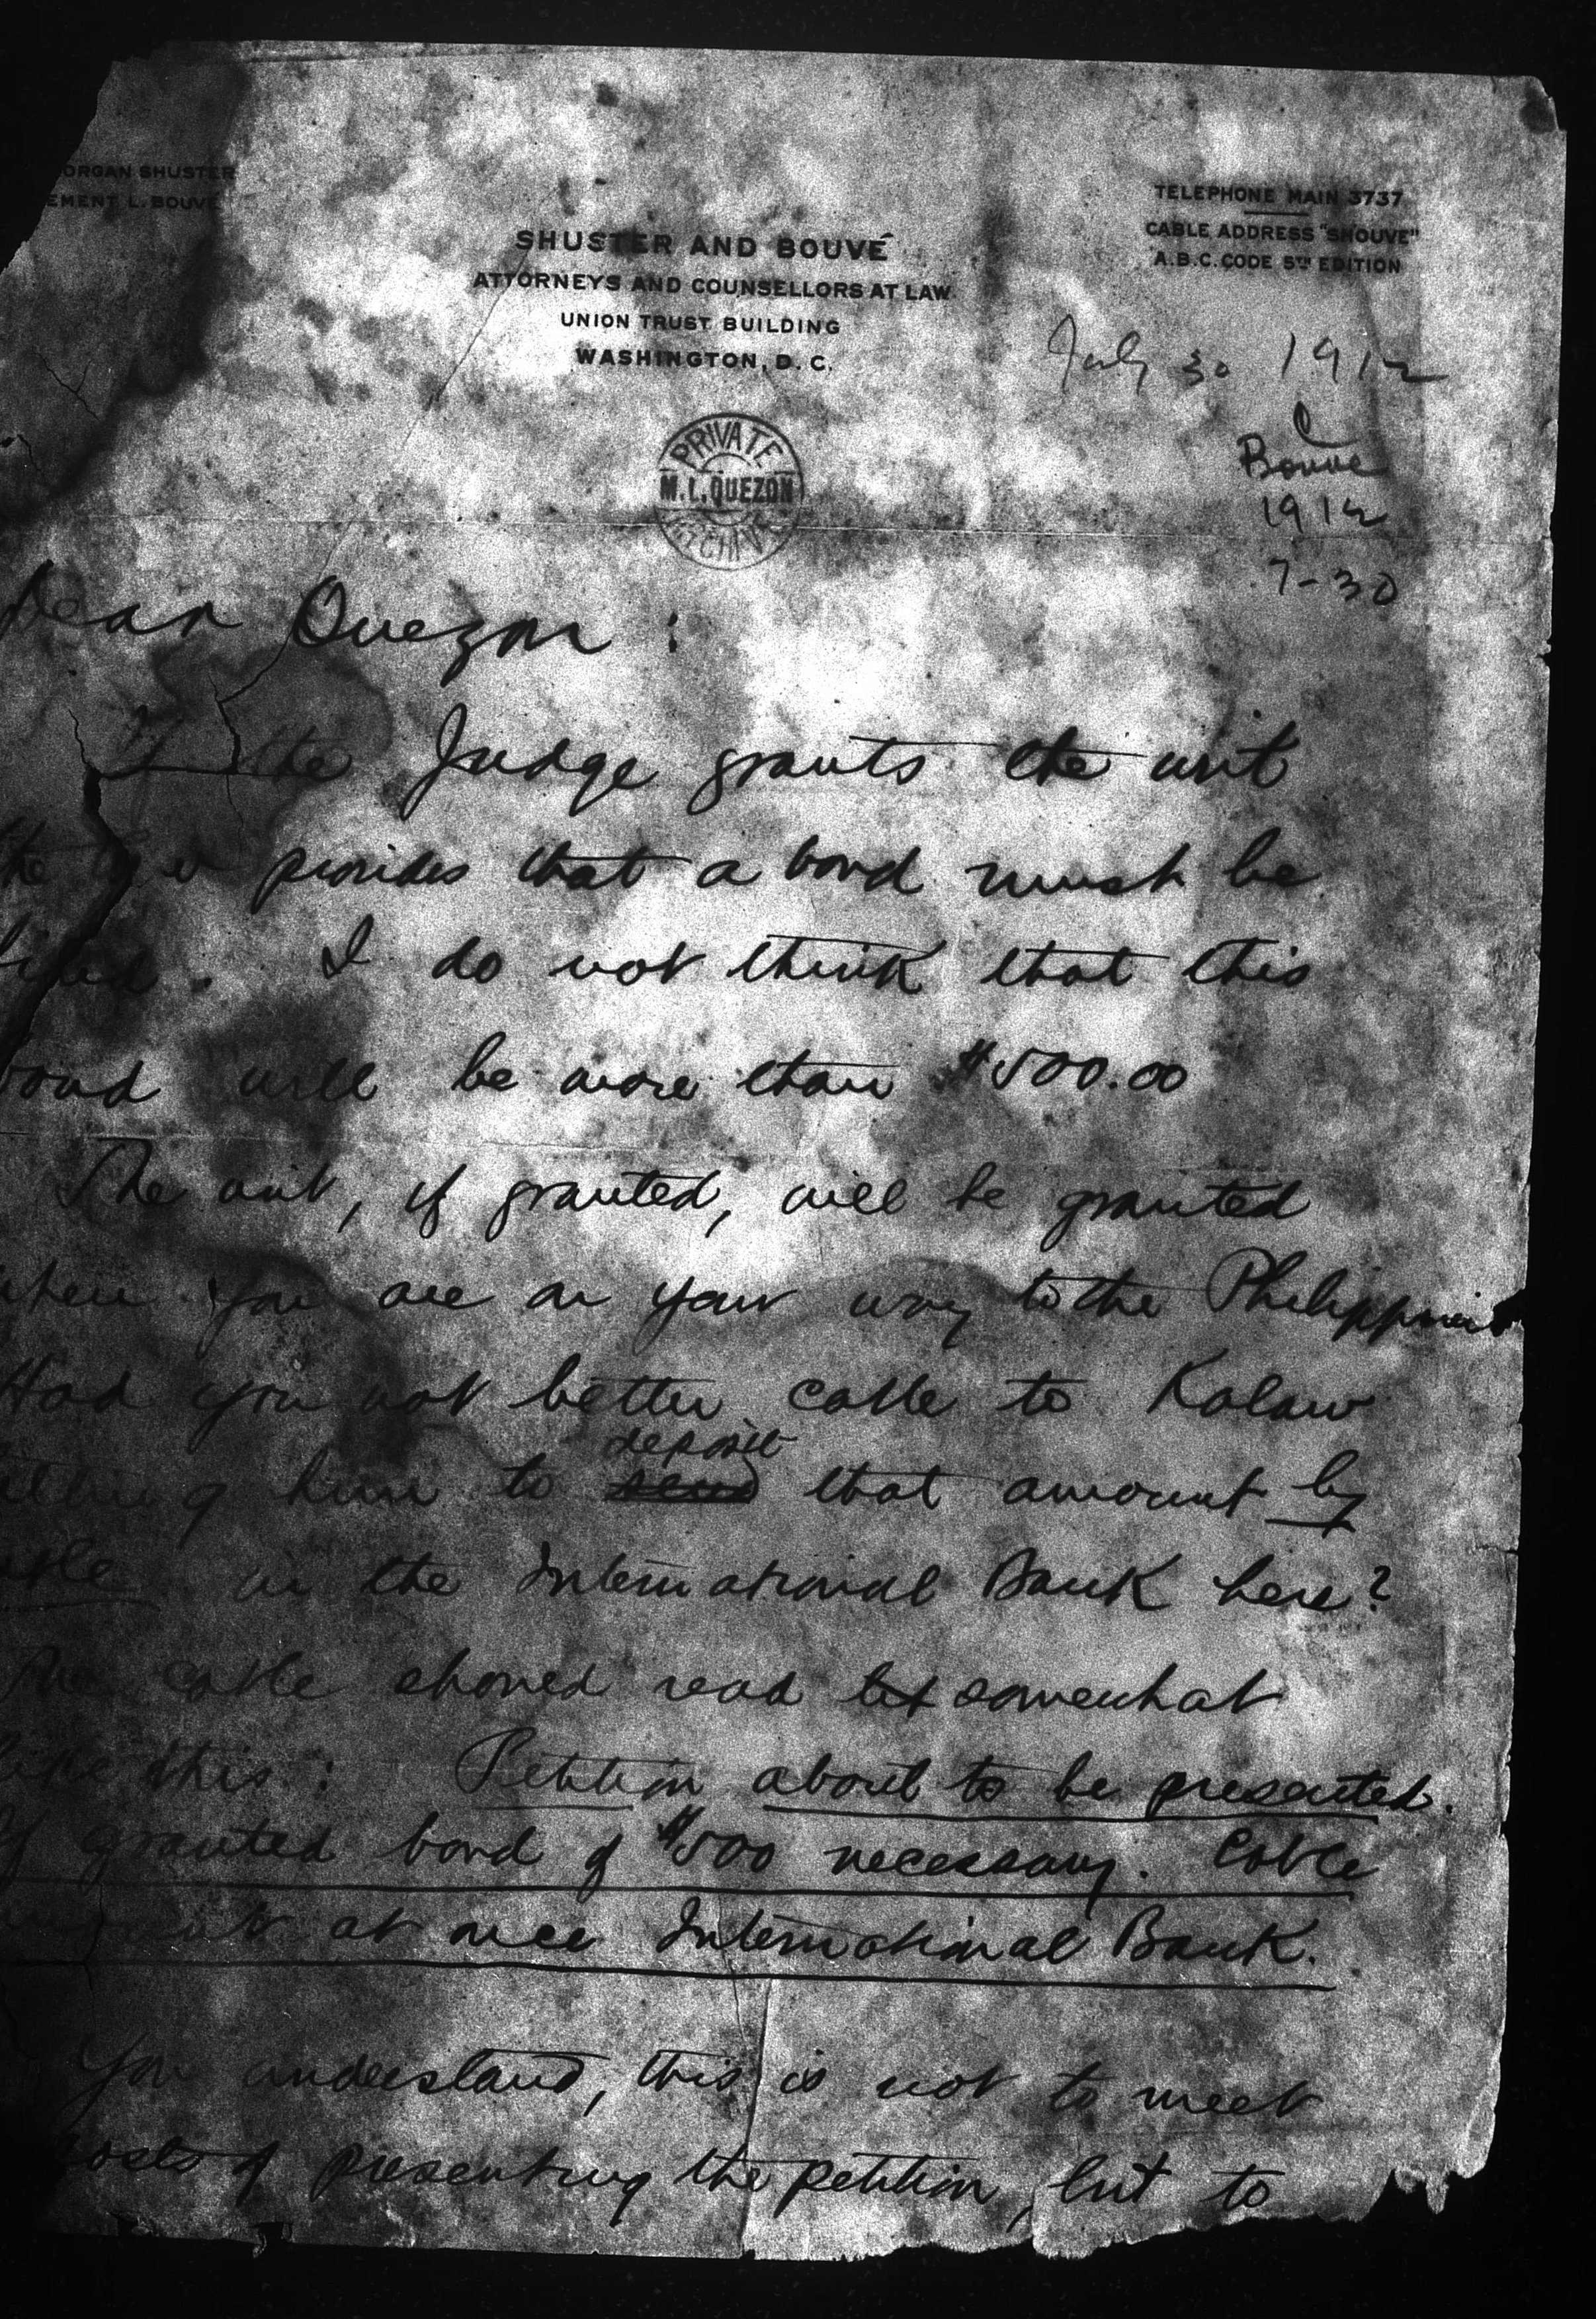 ORGAN SHUSTER
EMENT L. BOUVÉ
TELEPHONE MAIN 3737
CABLE ADDRESS "SHOUVE"
A.B.C. CODE 5TH EDITION
SHUSTER AND BOUVÉ
ATTORNEYS AND COUNSELLORS AT LAW
UNION TRUST BUILDING
WASHINGTON, D. C.
July 30 1912
Bouve
1912
7-30
PRIVATE
M. L. QUEZON
Dear Quezon :
If the Judge grants the writ
the provides that a bond must be
. I do not think that this
bond will be more than $500.00
The writ, if granted, will be granted
when you are on your way to the Philippines
Had you not better cable to Kalaw
telling him to deposit that amount by
cable in the International Bank here?
The cable should read somewhat
like this : Petition about to be presented.
If granted bond of $500 necessary. Cable
amount at once International Bank.
You understand, this is not to meet
costs of presenting the petition, but to